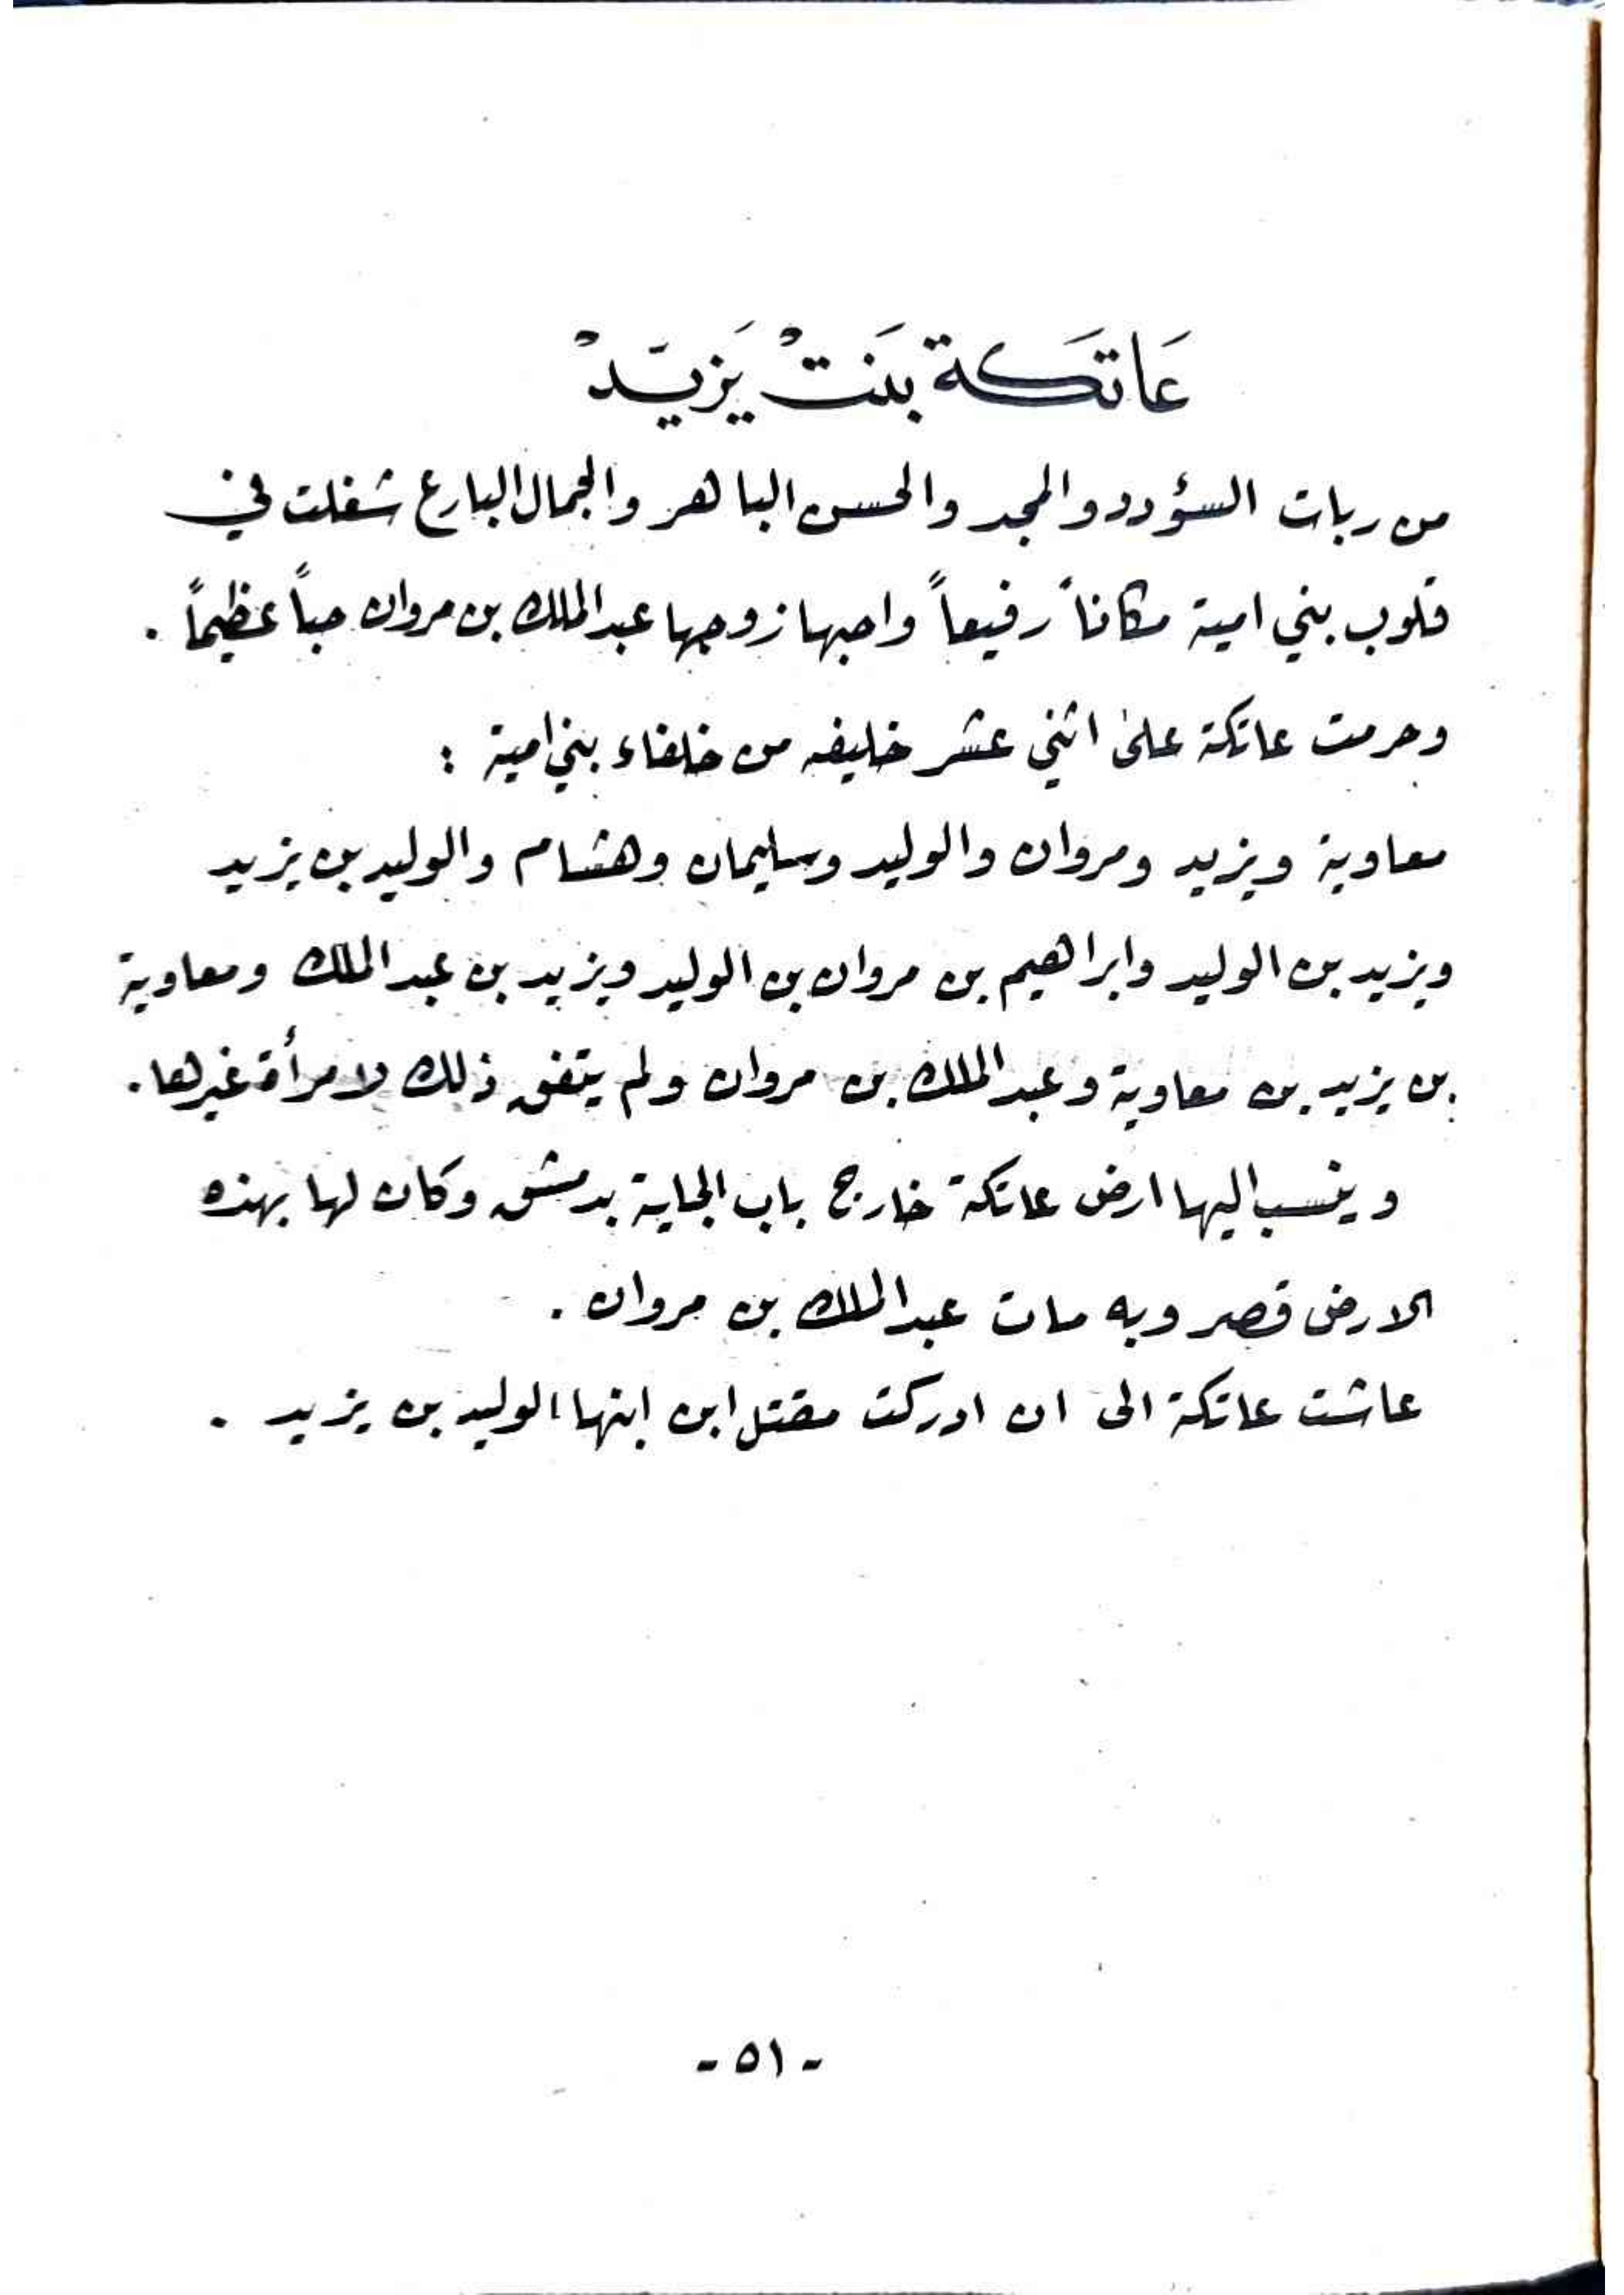 عَاتَكة بَنتْ يَزيّدْ
من ربات السؤدد والمجد والحسن الباهر والجمال البارع شغلت في
قلوب بني امية مكاناً رفيعاً واحبها زوجها عبد الملك بن مروان حباً عظيماً .
وحرمت عاتكة على اثني عشر خليفه من خلفاء بني امية :
معاوية ويزيد ومروان والوليد وسليمان وهشام والوليد بن يزيد
ويزيد بن الوليد وابراهيم بن مروان بن الوليد ويزيد بن عبد الملك ومعاوية
بن يزيد بن معاوية وعبد الملك بن مروان ولم يتفق ذلك لامرأة غيرها .
وينسب اليها ارض عاتكة خارج باب الجابية بدمشق وكان لها بهذه
الارض قصر وبه مات عبد الملك بن مروان .
عاشت عاتكة الى ان ادركت مقتل ابن ابنها الوليد بن يزيد .
- ٥١ -